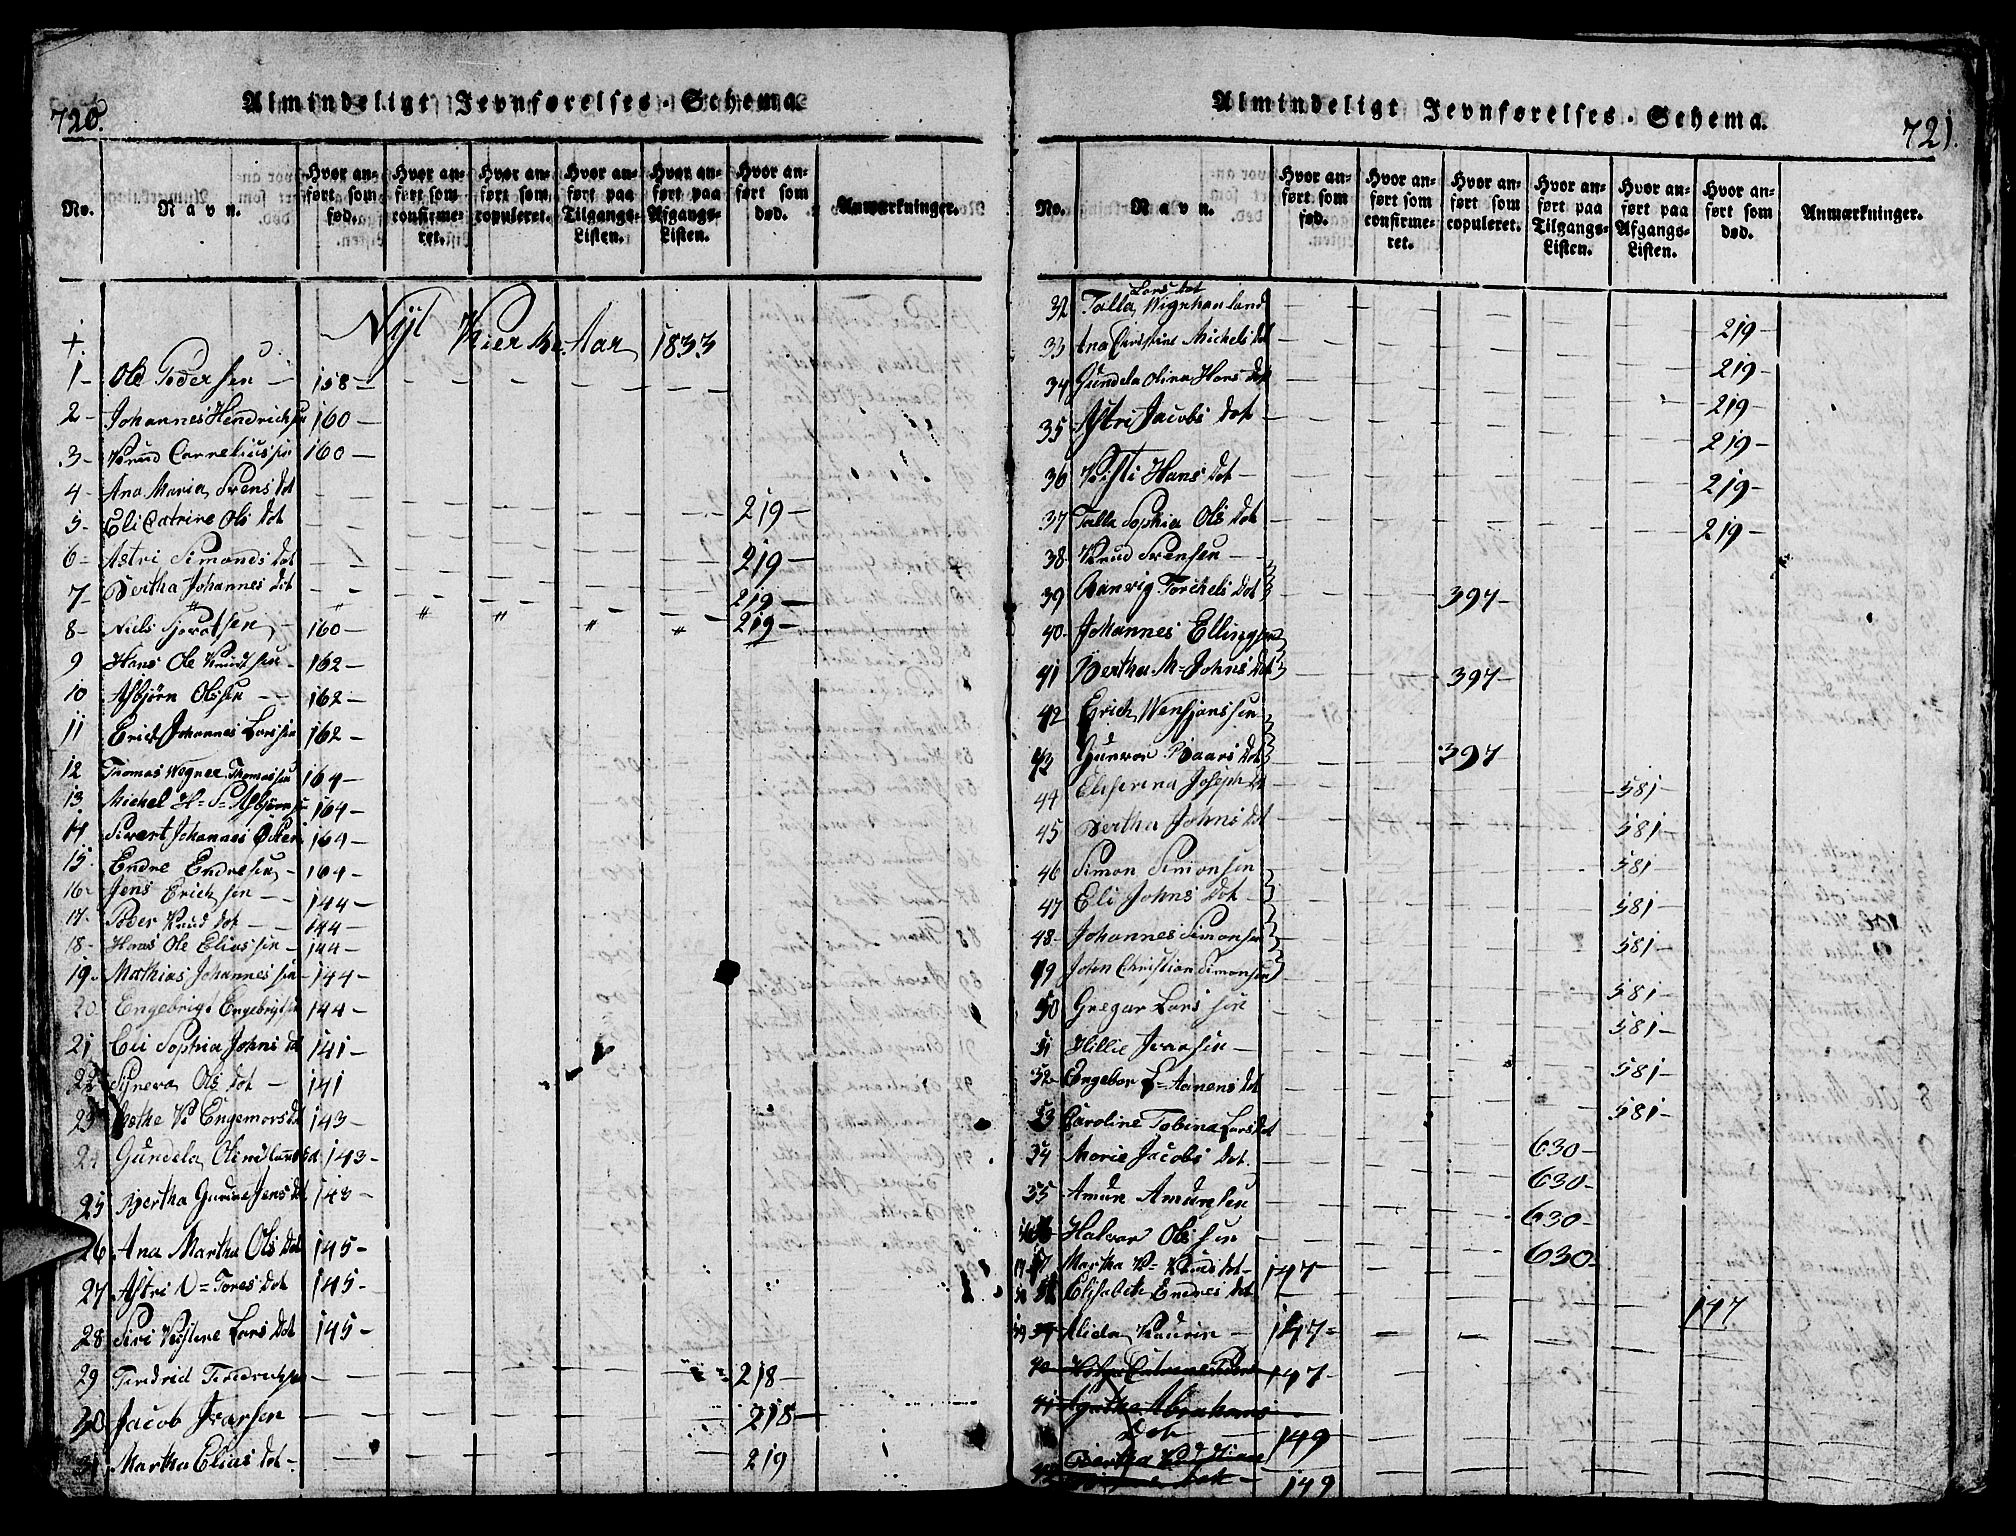 720.
Almindeligt Jevnførelses-Schema.
No.
Navn.
Hvor anført som fød.
Hvor anført som confirmeret.
Hvor anført som copuleret.
Hvor anført paa Tilgangs-Listen.
Hvor anført paa Afgangs-Listen.
Hvor anført som død.
Anmærkninger.
Nyt Kierke Aar 1833
1 - Ole Pedersen - 158 -
2 - Johannes Hendrichsen 160 -
3 - Knud Corneliussen 160 -
4 - Ana Maria Svens dot 219 -
5 - Eli Catrine Ols dot 219 -
6 - Astri Simons dot 219 -
7 - Bertha Johannes dot 219 -
8 - Niels Sjovatsen 160 -
9 Hans Ole Knudsen - 162 -
10 Asbjörn Olssen - 162 -
11 Erich Johannes Larssen 162 -
12 Thomas Wegner Thomassen 164 -
13 Michel H= S= Asbjörnsen 164 -
14 Sivert Johannes 164 -
15 Endre Endresen - 164 -
16 Jens Erichsen - 144 -
17 Peder Knud dot - 144 -
18 - Hans Ole Eliassen - 144 -
19 - Mathias Johannessen - 144 -
20 Engebrigt Engebrigtsen 144 -
21 Eli Sophia Johns dot 141 -
22 Synneva Ols dot - 141
23 K= Engemors dot 143 -
24 Gundela Oline 143 -
25 Bertha Gurine Jens dot 143
26 Ana Martha Ols dot 145 -
27 Astri O= Tores dot 145 -
28 Siri Kistene Lars dot 145 -
29 218 -
30 Jacob Ivarsen 218 -
31 Martha Elias dot - 219
721.
Almindeligt Jevnførelses-Schema.
No.
Navn.
Hvor anført som fød.
Hvor anført som confirmeret.
Hvor anført som copuleret.
Hvor anført paa Tilgangs-Listen.
Hvor anført paa Afgangs-Listen.
Hvor anført som død.
Anmærkninger.
Lars dot
32 Talla 219 -
33 Ana Christine Michels dot 219 -
34 Gundela Olina Hans dot 219 -
35 Astri Jacobs dot 219 -
36 Kisti Hans dot - 219 -
37 Talla Sophia Ols dot 219 -
38 Knud Svensen
39 Torchels dot 397 -
40 Johannes Ellingsen
41 Bertha M= Johns dot 397 -
42 Erich
43 Gunvor Baars dot 397
44 Eliserina Joseph dot 581 -
45 Bertha Johns dot 581 -
46 Simon Simonsen 581 -
47 Eli Johns dot 581 -
48 Johannes Simonsen 581 -
49 John Christian Simonsen 581 -
50 Gregar Larssen 581 -
51 Hillie Ivarsen 581 -
52 Engebor L= Aanens dot 581 -
53 Caroline Tobina Lars dot
34 Marie Jacobs dot 630 -
35 Amun Amunsen 630 -
36 Halvor Olssen 630 -
37 Martha K= Knuds dot - 147 630 -
38 Elisabeth Endres dot 147
39 Alida Kaurin - 147 -
40 Catrine 147 -
41 Agathe Abrahams
Dot - 149
42 Bertha
dot - 149